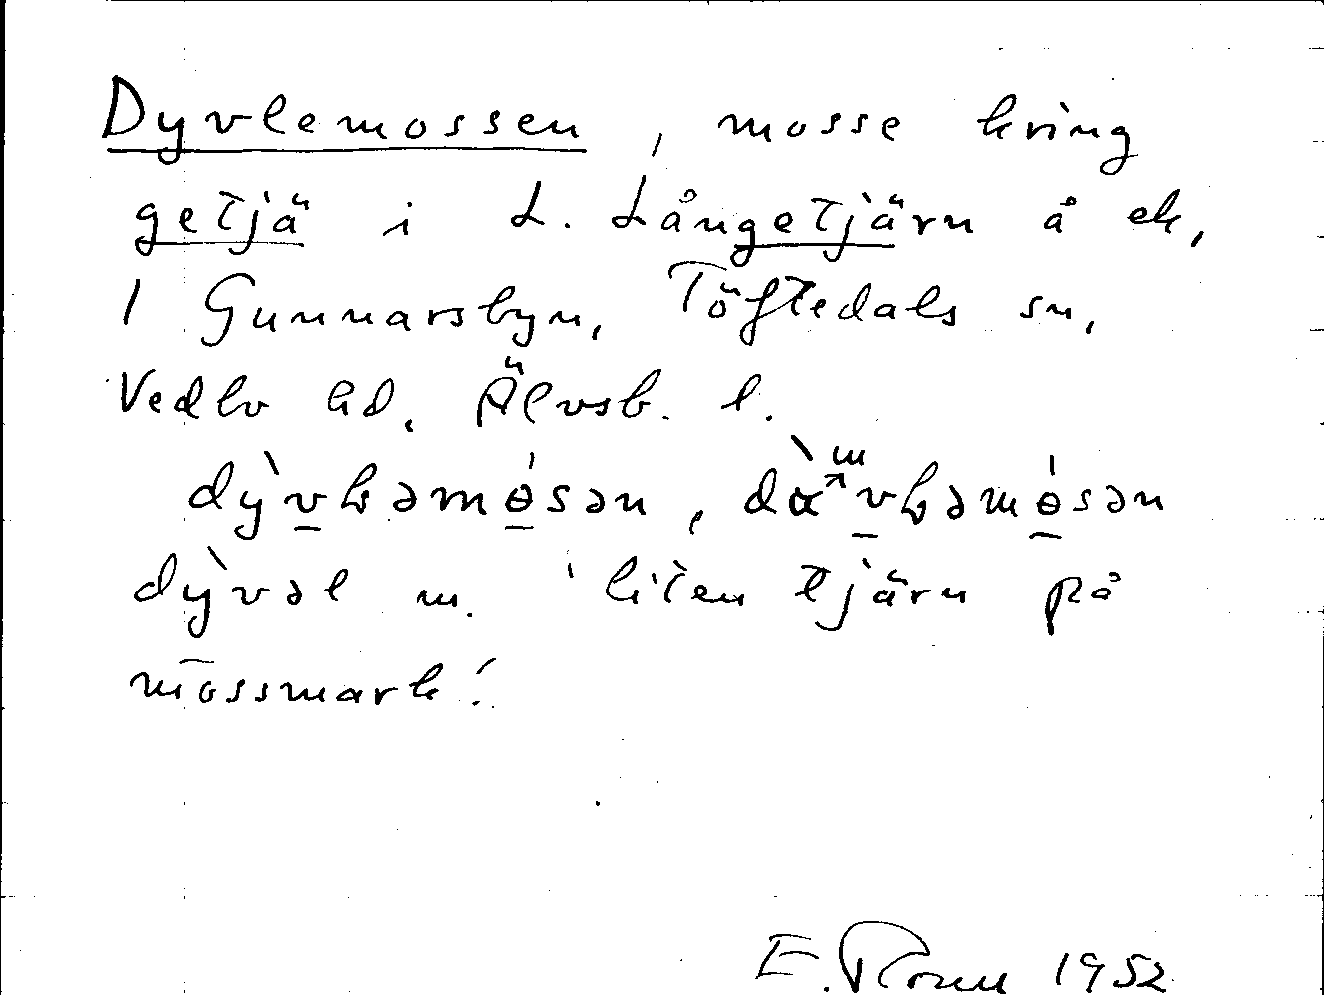 Dyvlemossen, mosse kring
getjä i L. Långetjärn å ek,
1 Gunnarsbyn, Töftedals sn,
Vedbo hd, Älvsb. l.
dỳvḷəmɵ́sən,
dỳvəl m. 'liten tjärn på
mossmark'.
E. 1952